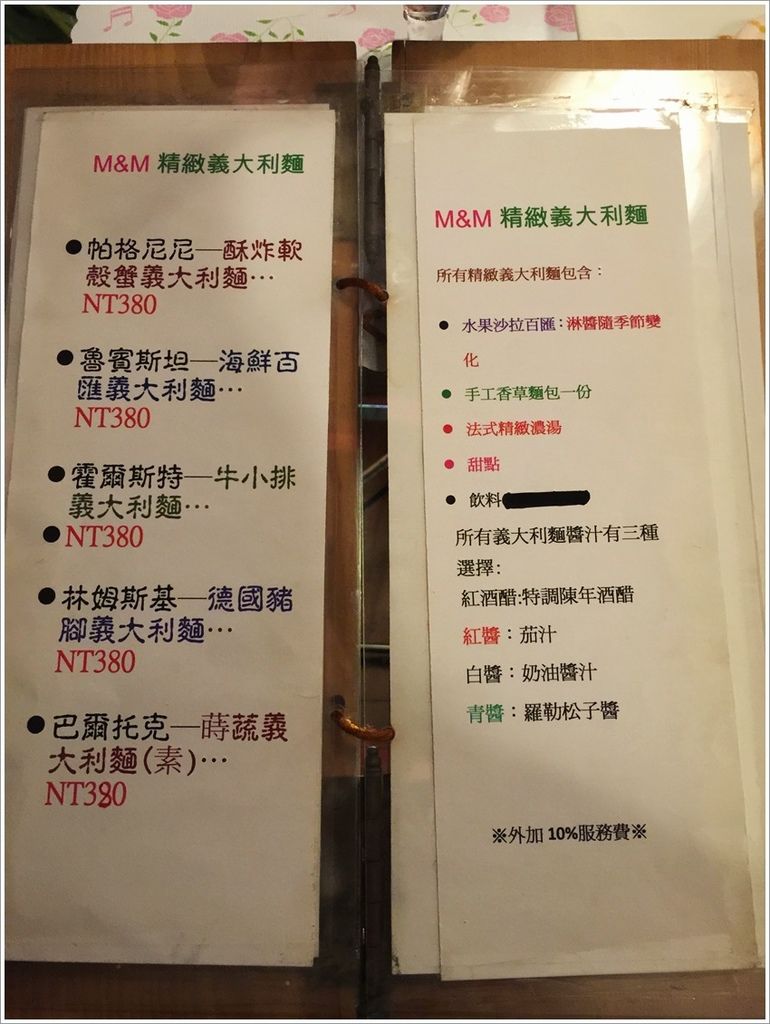 M&M 精緻義大利麵
●帕格尼尼—酥炸軟
殼蟹義大利麵…
NT380
●魯賓斯坦—海鮮百
匯義大利麵…
NT380
●霍爾斯特—牛小排
義大利麵…
●NT380
●林姆斯基—德國豬
腳義大利麵…
NT380
●巴爾托克—蒔蔬義
大利麵(素)…
NT380
M&M 精緻義大利麵
所有精緻義大利麵包含：
● 水果沙拉百匯：淋醬隨季節變
化
● 手工香草麵包一份
● 法式精緻濃湯
● 甜點
● 飲料
所有義大利麵醬汁有三種
選擇:
紅酒醋:特調陳年酒醋
紅醬：茄汁
白醬：奶油醬汁
青醬：羅勒松子醬
※外加 10%服務費※